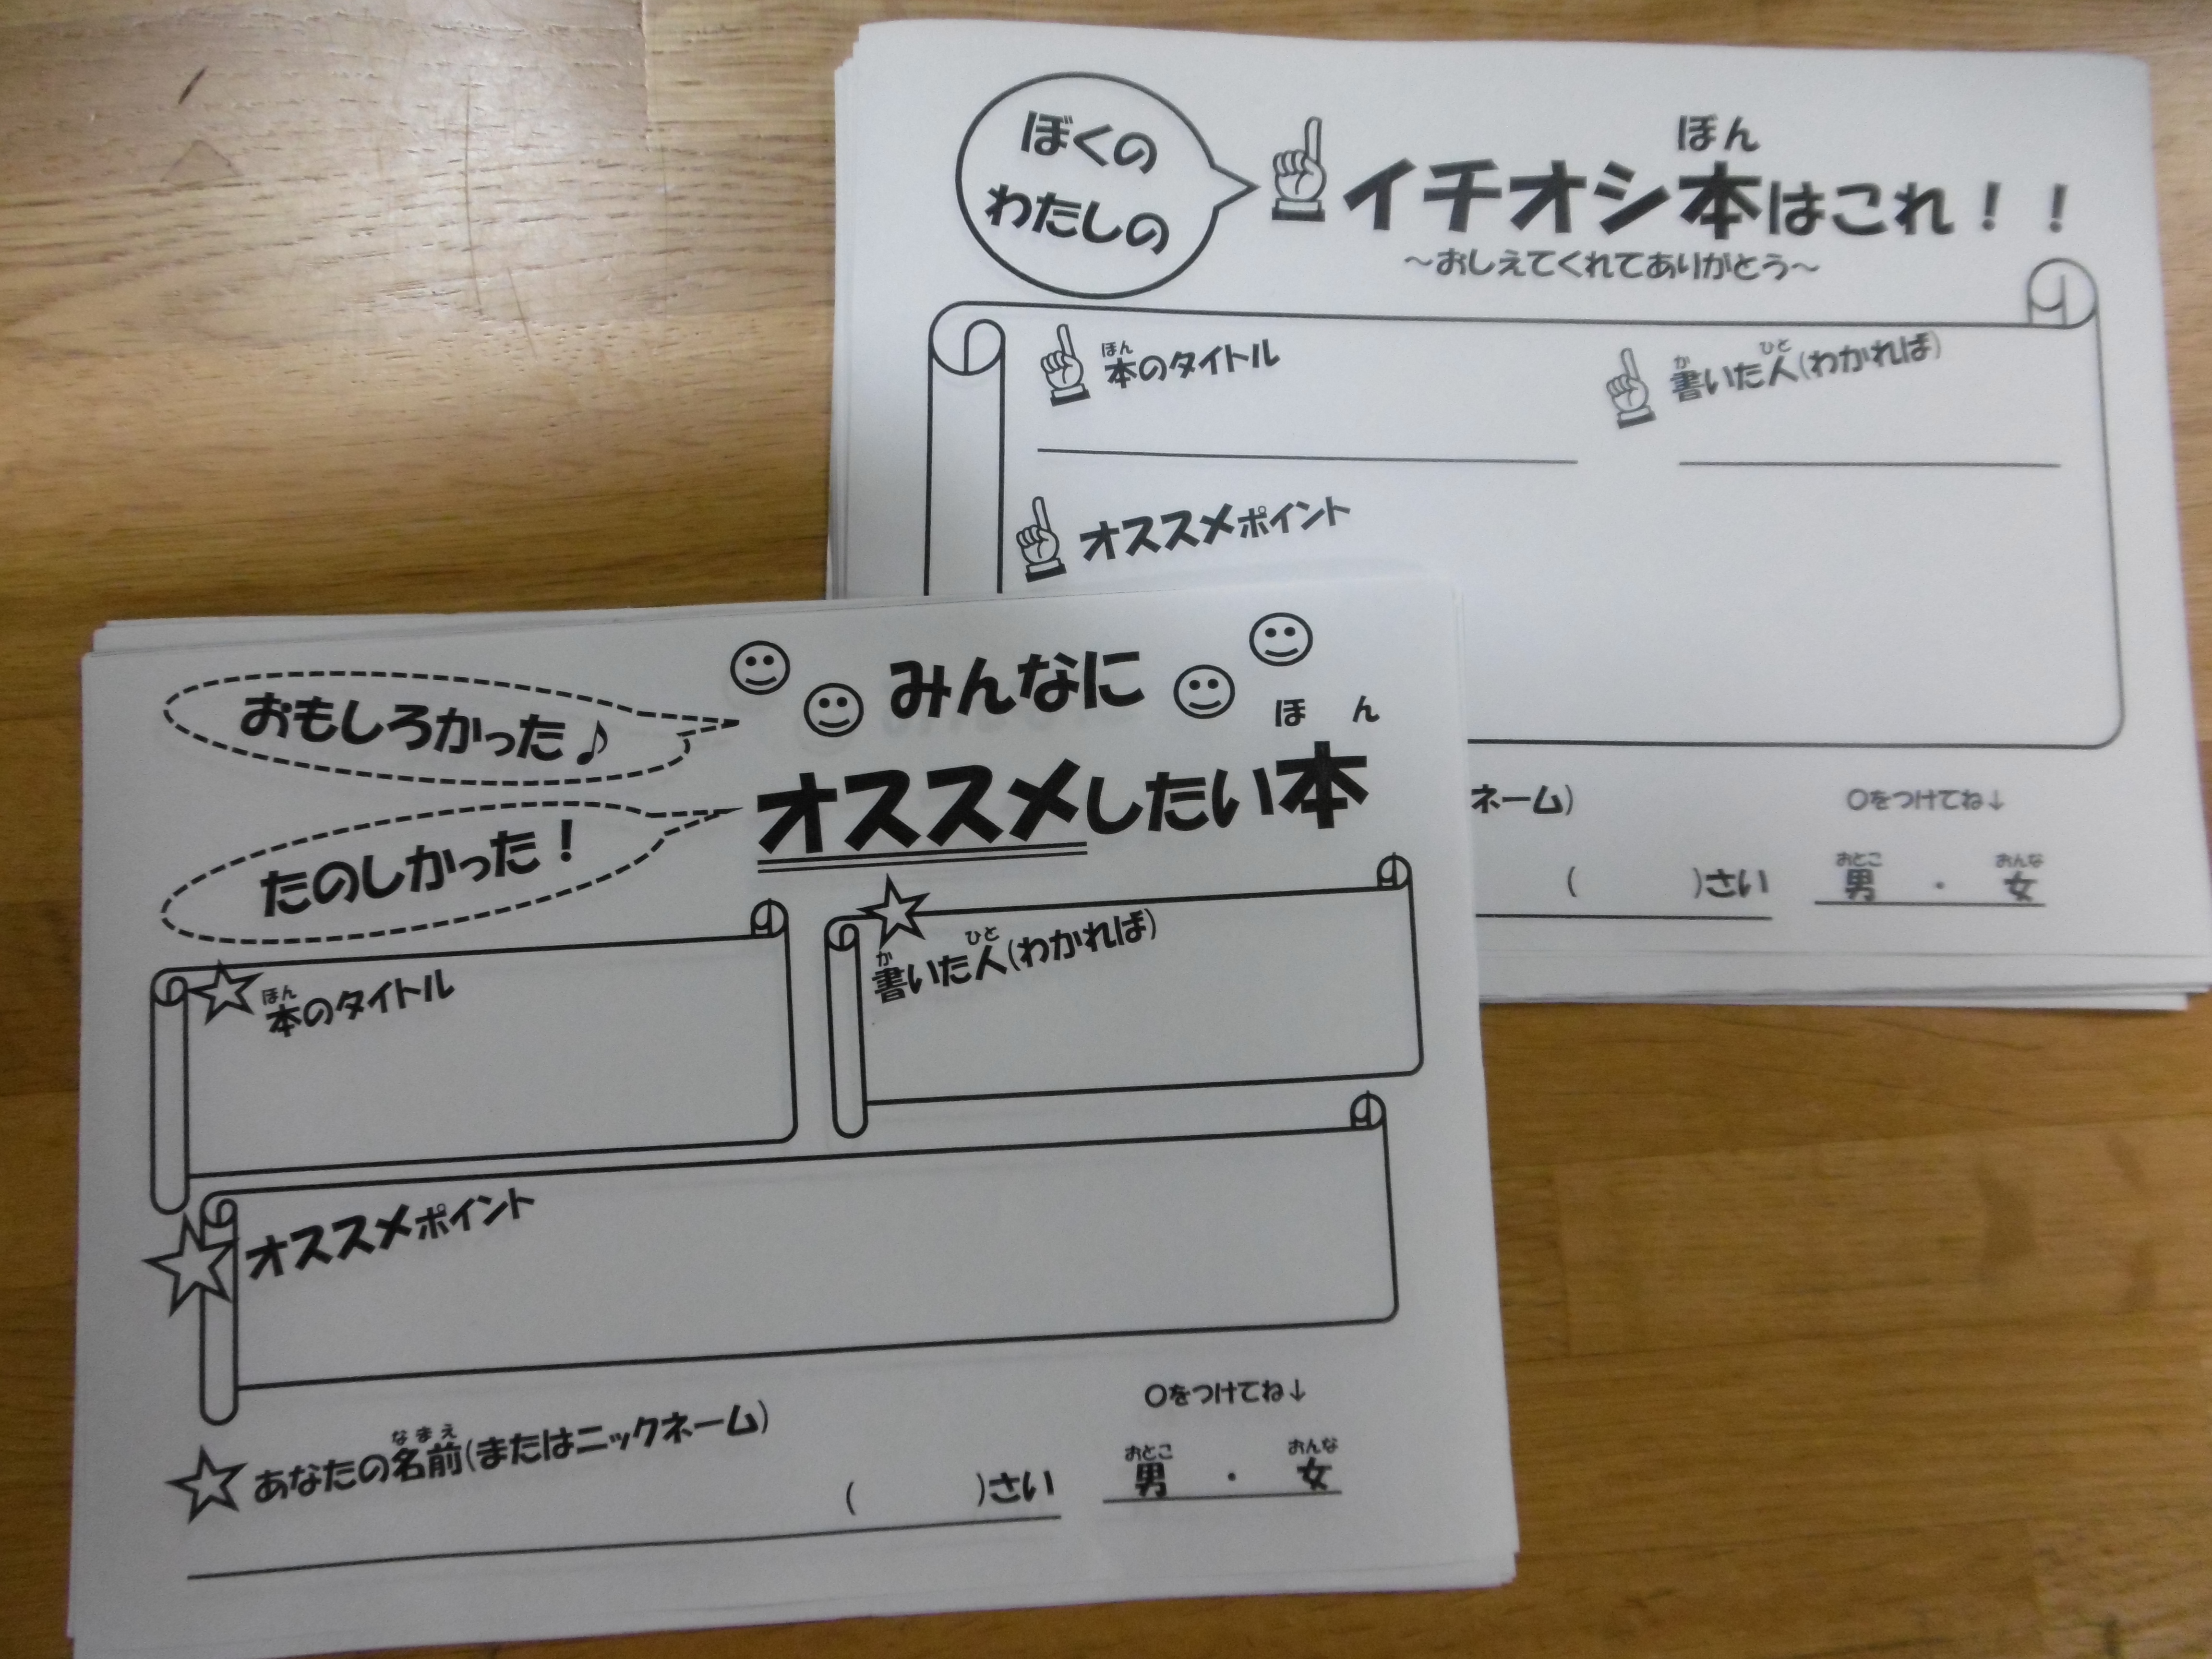 ぼくの
わたしの
ほん
イチオシ本はこれ！！
～おしえてくれてありがとう～
ほん
本のタイトル
か ひと
書いた人(わかれば)
オススメポイント
ネーム)
○をつけてね↓
( )さい
おとこ おんな
男 ・ 女
おもしろかった♪
たのしかった！
みんなに
ほん
オススメしたい本
ほん
本のタイトル
か ひと
書いた人(わかれば)
オススメポイント
なまえ
あなたの名前(またはニックネーム)
( )さい
○をつけてね↓
おとこ おんな
男 ・ 女